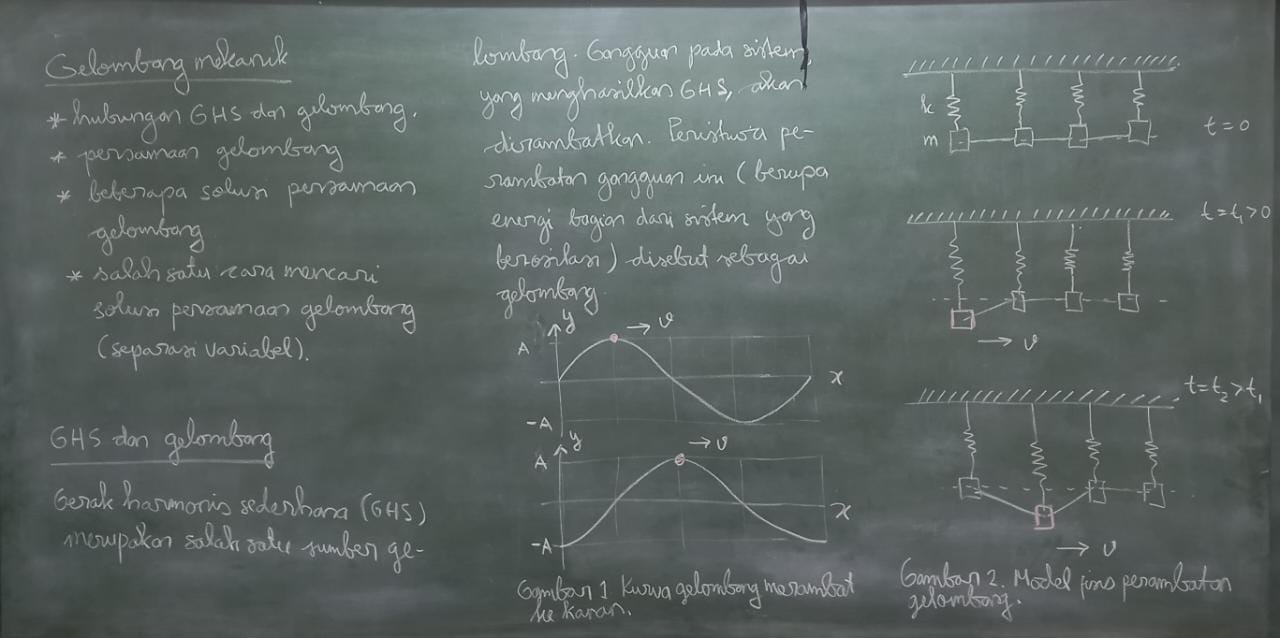 Gelombang mekanik
* hubungan GHS dan gelombang.
* persamaan gelombang
* beberapa solusi persamaan
gelombang
* salah satu cara mencari
solusi persamaan gelombang
(separasi variabel).
GHS dan gelombang
Gerak harmonis sederhana (GHS)
merupakan salah satu sumber ge-
lombang. Gangguan pada sistem,
yang menghasilkan GHS, akan
dirambatkan. Peristiwa pe-
rambatan gangguan ini (berupa
energi bagian dari sistem yang
berosilasi) disebut sebagai
gelombang.
y
→ v
A
x
-A
y
→ v
A
x
-A
Gambar 1 Kurva gelombang merambat
ke kanan.
k
m
t = 0
t = t₁ > 0
→ v
t = t₂ > t₁
→ v
Gambar 2. Model fisis perambatan
gelombang.